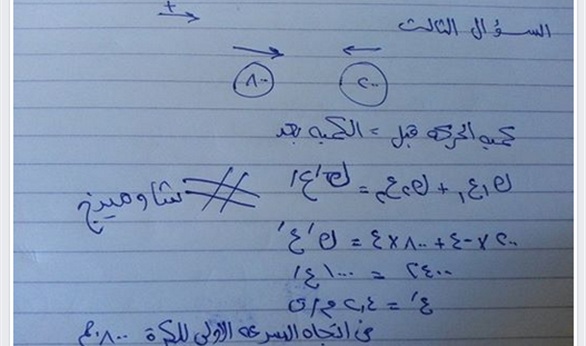 +
السؤال الثالث
٨٠٠ ٢٠٠
كمية الحركة قبل = الكمية بعد
ك١ع١ + ك٢ع٢ = ك١'ع١'
شاومينج
٢٠٠ × -٤ + ٨٠٠ × ٤ = ك'ع'
٢٤٠٠ = ١٠٠٠ ع'
ع' = ٢,٤ م/ث
في اتجاه السرعة الأولى للكرة ٨٠٠